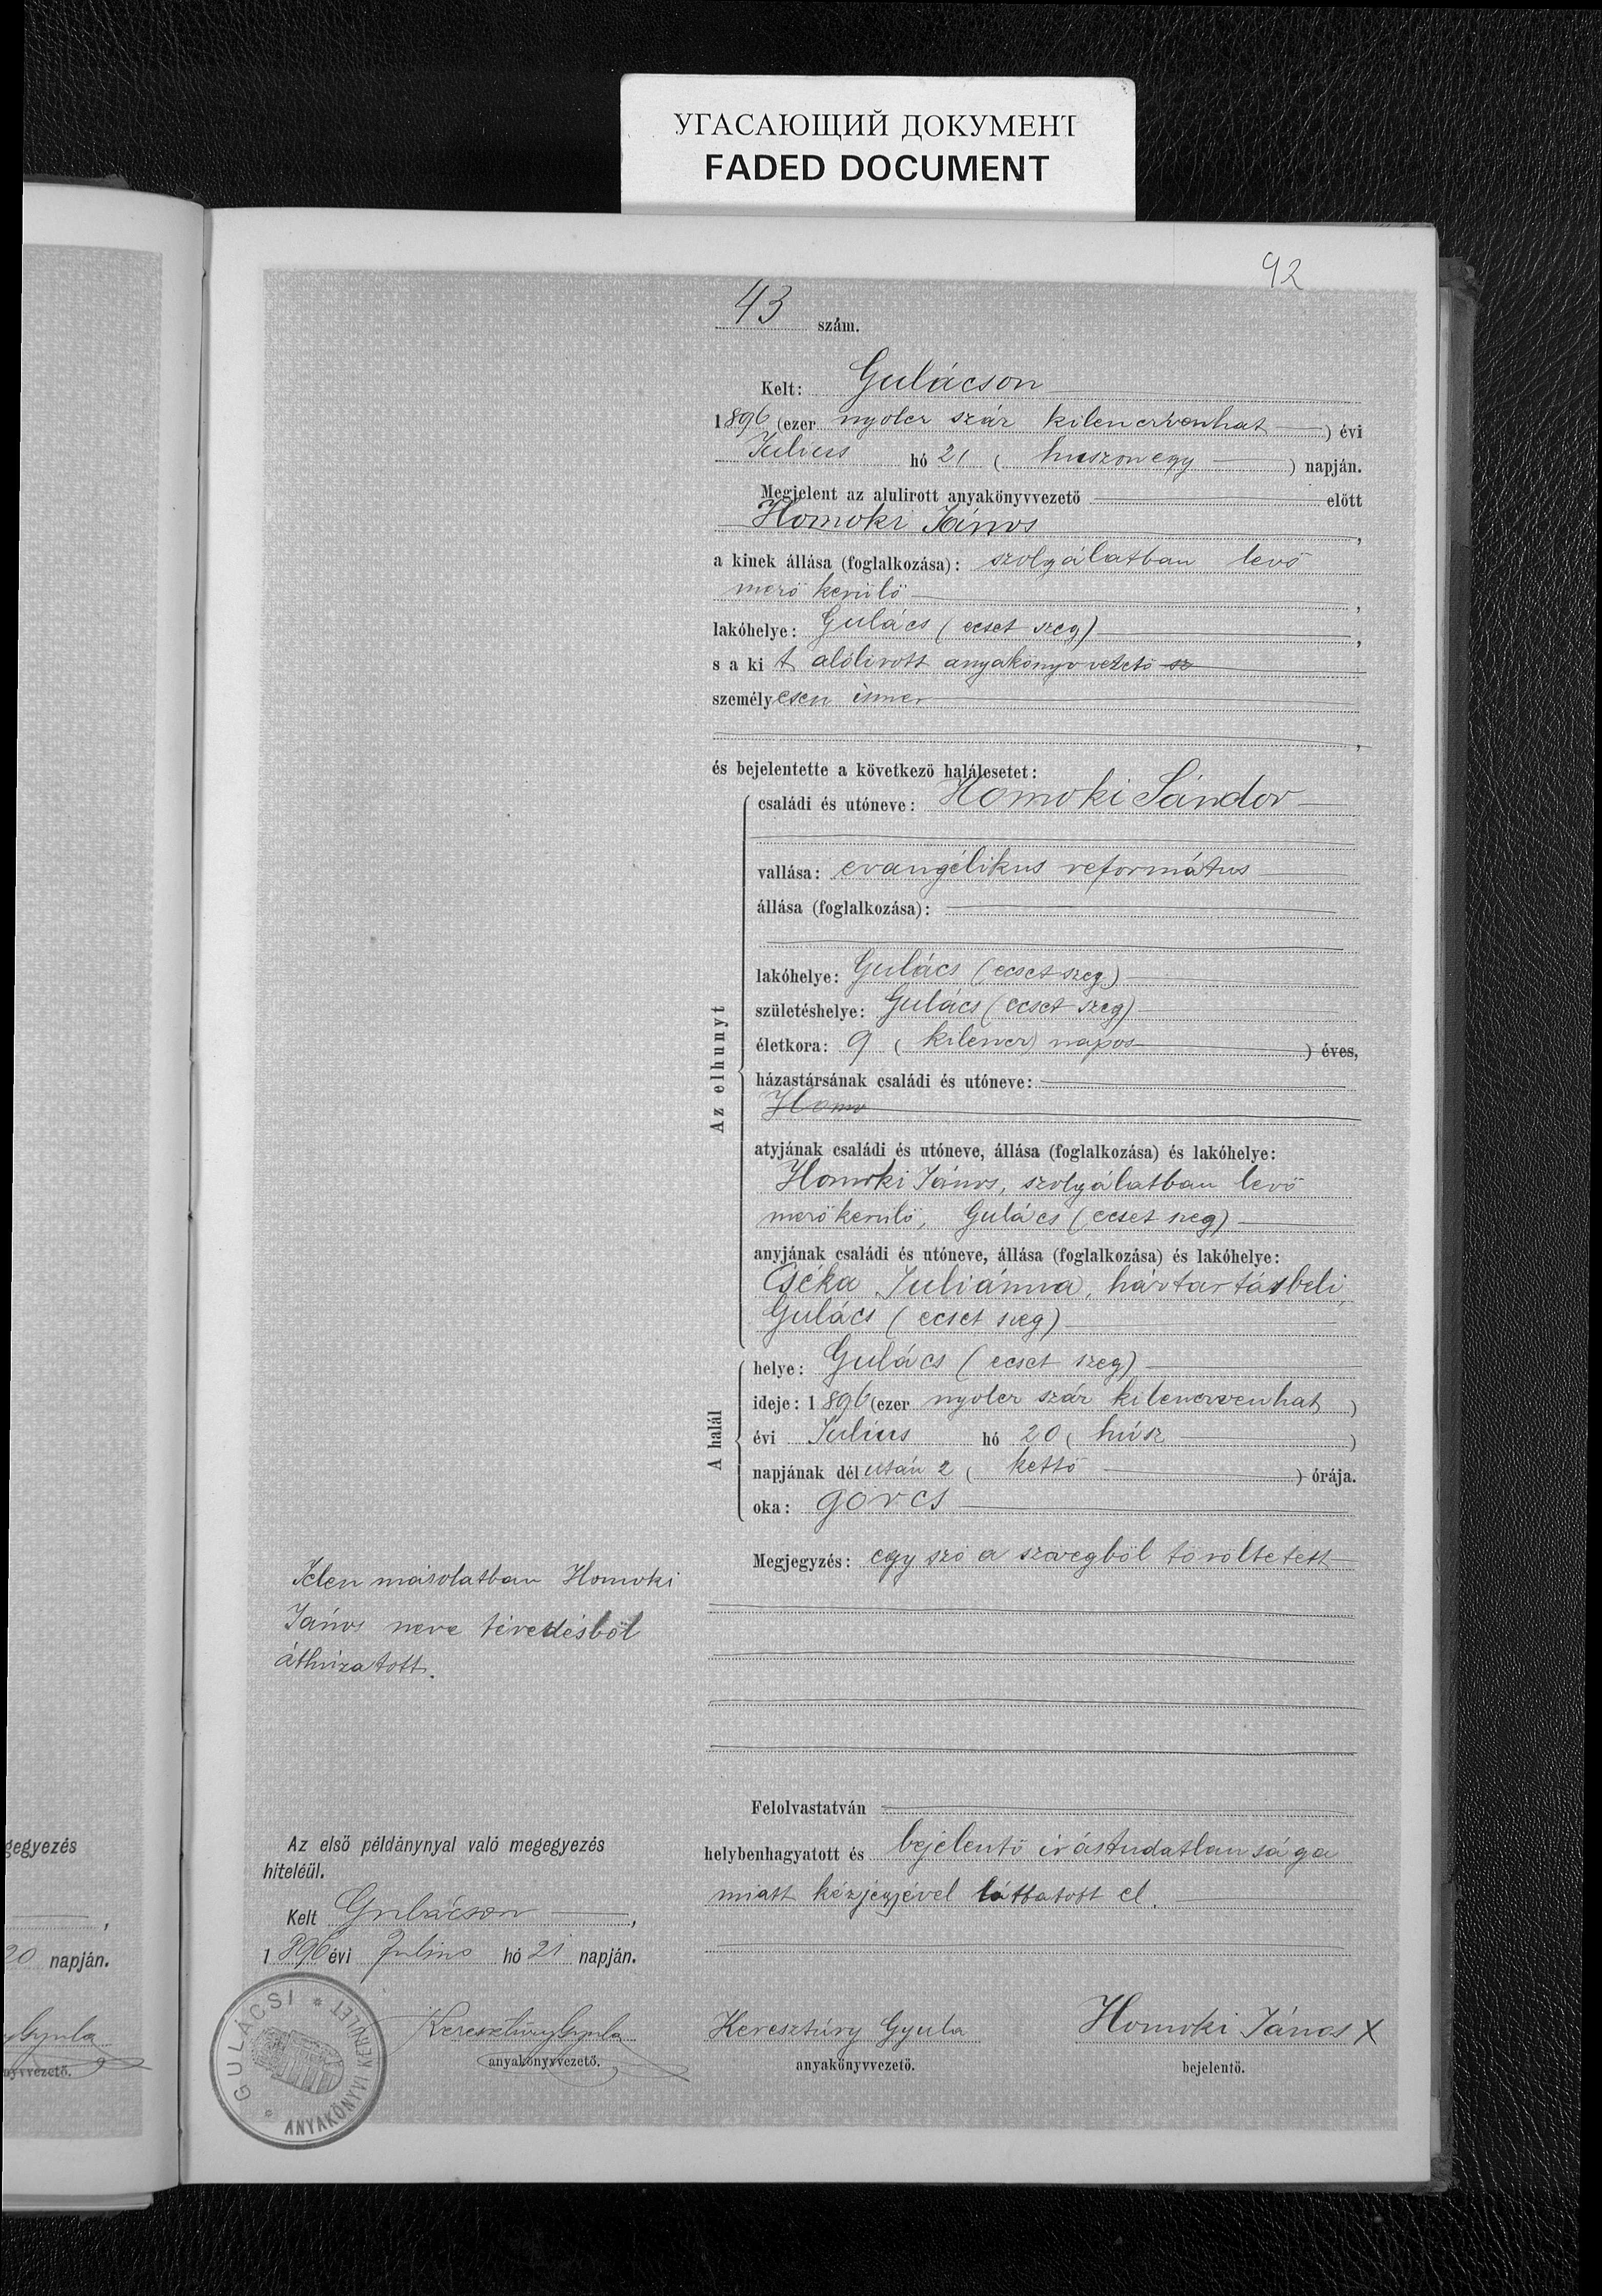 УГАСАЮЩИЙ ДОКУМЕНТ
FADED DOCUMENT
92
43 szám.
Kelt: Gulácson
1896 (ezer nyolcz száz kilenczvenhat) évi
Julius hó 21 (huszonegy) napján.
Megjelent az alulirott anyakönyvvezető előtt
Homoki János,
a kinek állása (foglalkozása): szolgálatban levő
mező kerülő,
lakóhelye: Gulács (ecset szeg),
s a kit alólirott anyakönyvvezető sz
személyesen ismer
,
és bejelentette a következő halálesetet:
Az elhunyt
családi és utóneve: Homoki Sándor
vallása: evangélikus református
állása (foglalkozása):
lakóhelye: Gulács (ecset szeg)
születéshelye: Gulács (ecset szeg)
életkora: 9 (kilencz) napos ) éves,
házastársának családi és utóneve:
Homo
atyjának családi és utóneve, állása (foglalkozása) és lakóhelye:
Homoki János, szolgálatban levő
mezőkerülő, Gulács (ecset szeg)
anyjának családi és utóneve, állása (foglalkozása) és lakóhelye:
Cséka Juliánna, háztartásbeli,
Gulács (ecset szeg)
A halál
helye: Gulács (ecset szeg)
ideje: 1896 (ezer nyolcz száz kilenczvenhat)
évi Julius hó 20 (húsz)
napjának délután 2 (kettő) órája.
oka: görcs
Megjegyzés: egy szó a szövegből töröltetett
Jelen másolatban Homoki
János neve tévedésből
áthúzatott.
Felolvastatván
helybenhagyatott és bejelentő irástudatlansága
miatt kézjegyével láttatott el.
Keresztúry Gyula
anyakönyvvezető.
Homoki János X
bejelentő.
Az első példánynyal való megegyezés
hiteléül.
Kelt Gulácson,
1896 évi Julius hó 21 napján.
Keresztúry Gyula
anyakönyvvezető.
GULÁCSI * ANYAKÖNYVI KERÜLET *
gegyezés
,
20 napján.
Gyula
nyvvezető.